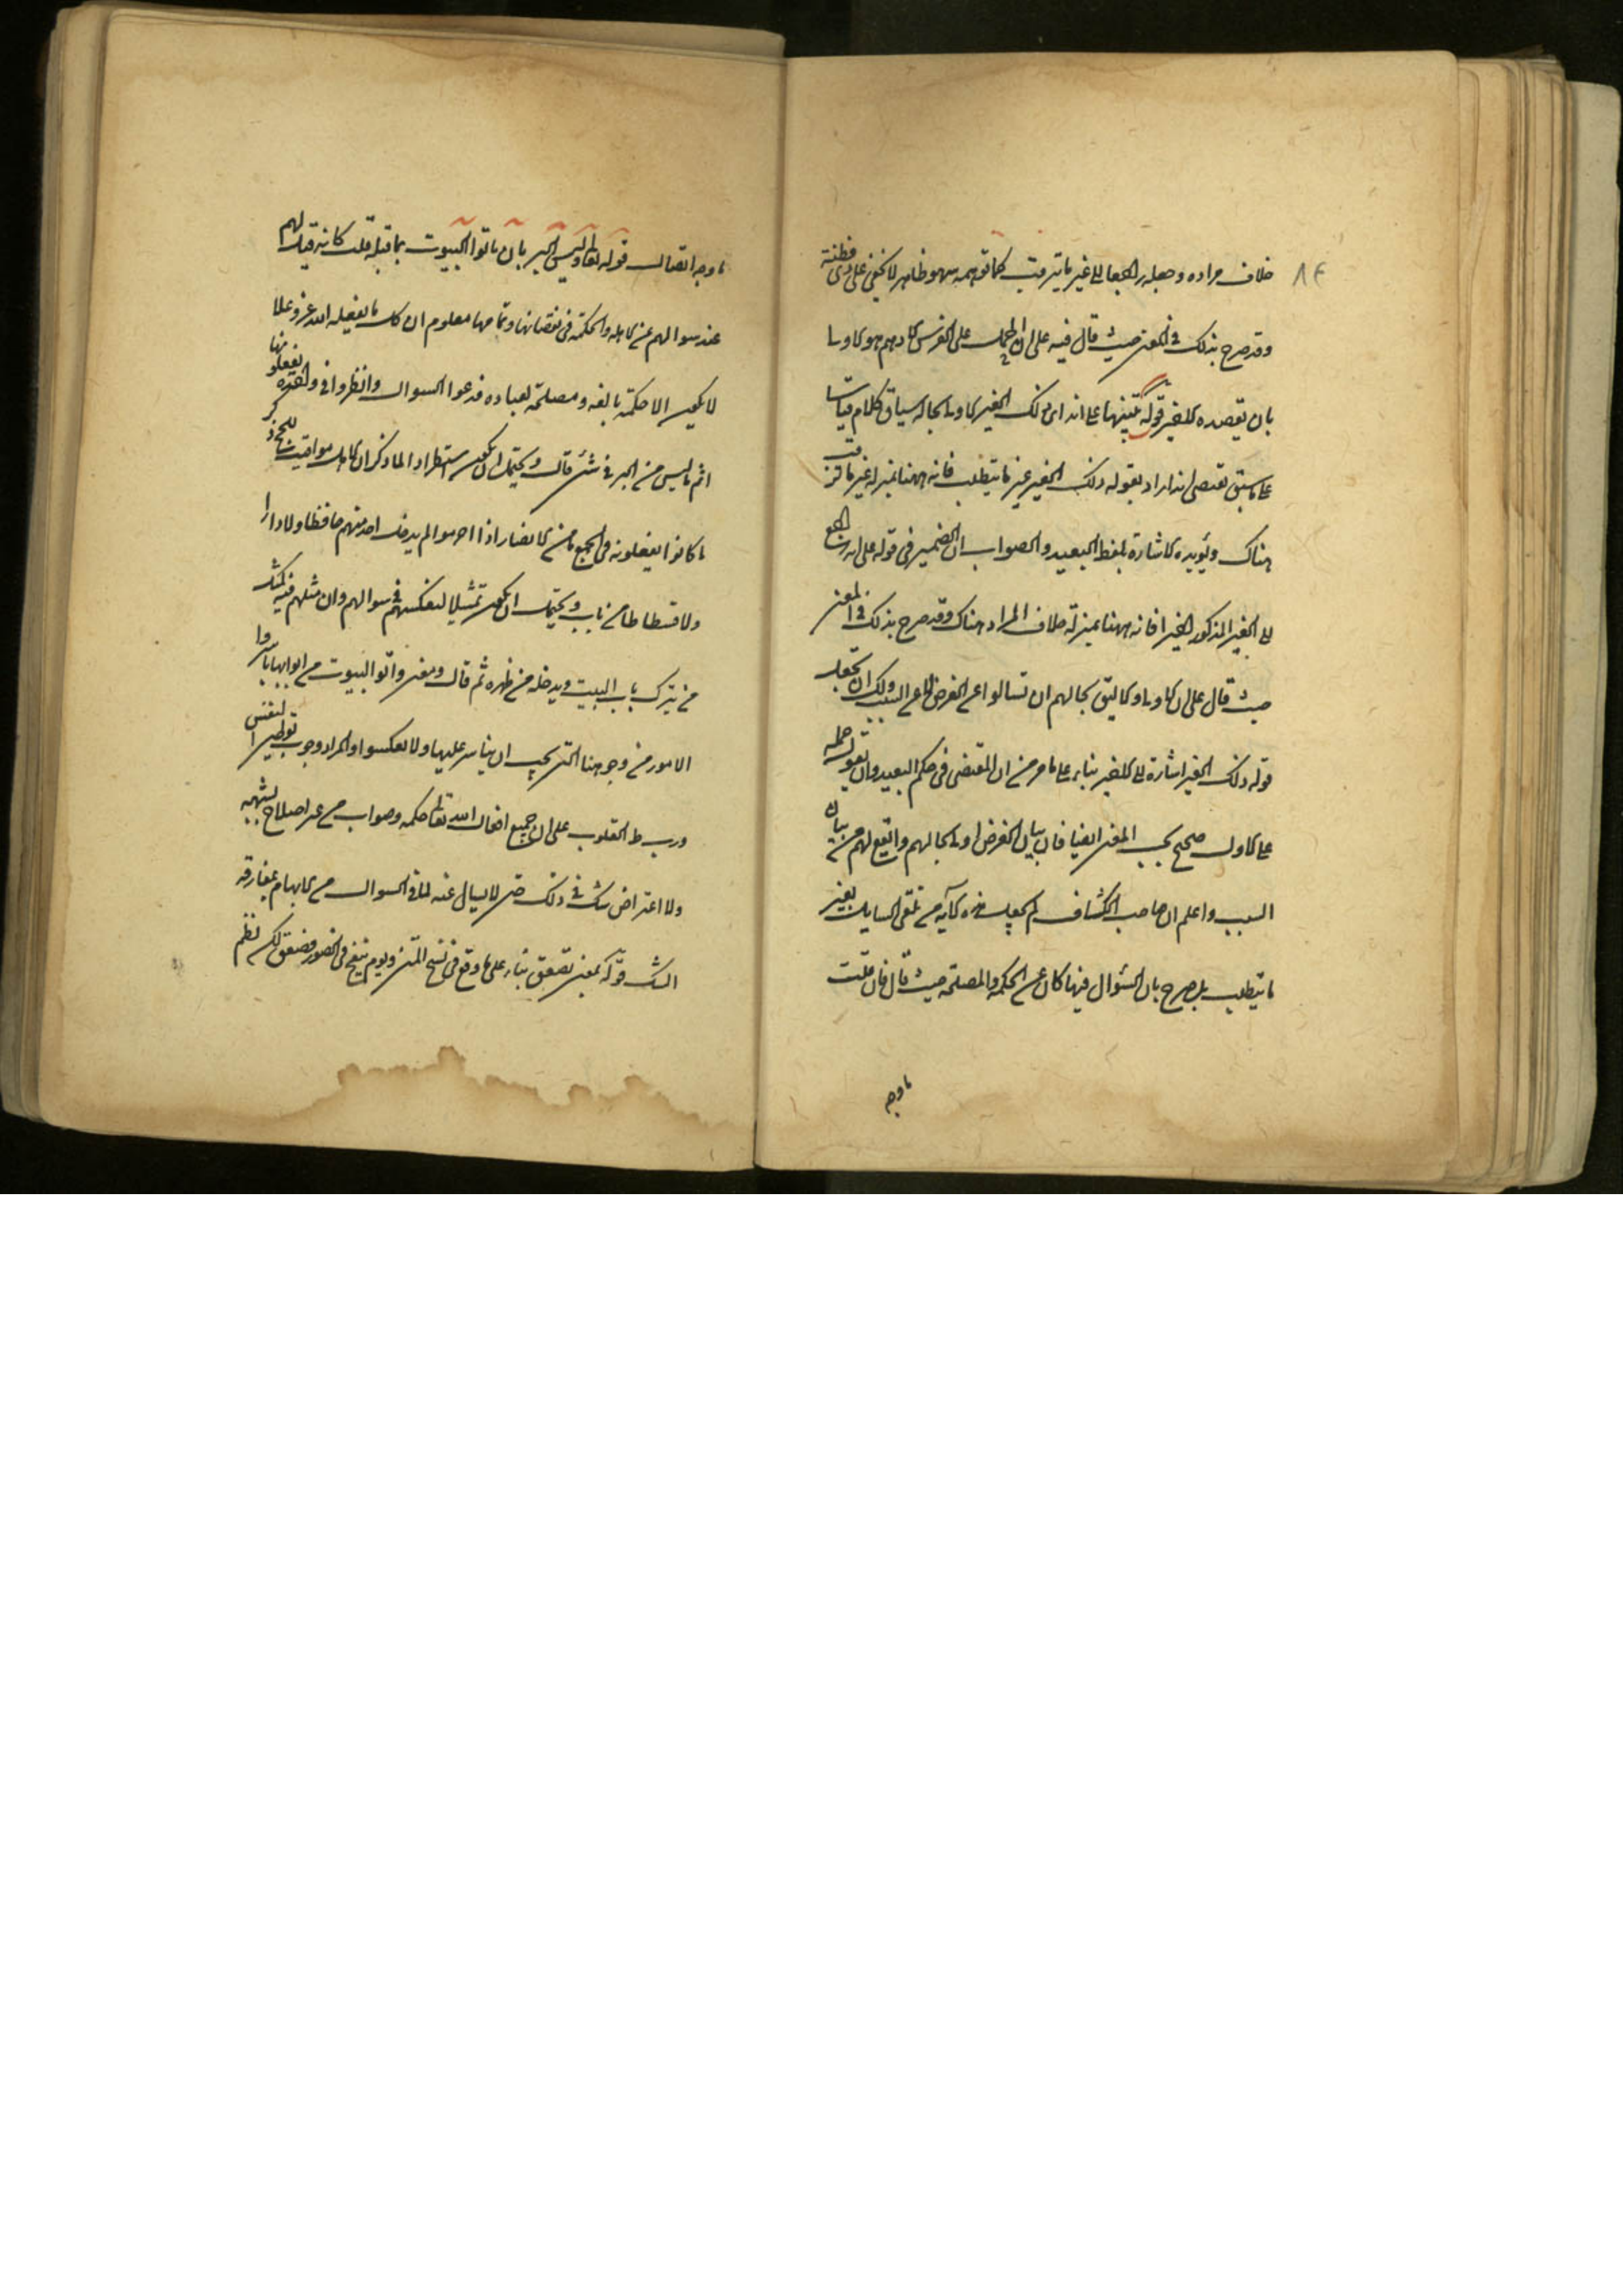 ٨٤
خلاف مراده وجعله راجعا الى غير ما يترقب كما توهمه سهو ظاهر لا يخفى على ذى فطنة
وقد صرح بذلك فى المعنى حيث قال فيه على ان الحمل على الفرس الادهم هو الاولى
بان يقصده الامير قوله تنبيها على انه اى ذلك الغير الاولى بحاله سياق الكلام قياسا
على ما سبق يقتضى انه اراد بقوله ذلك الغير غير ما يتطلب فانه ههنا بمنزلة غير ما يترقب
هناك ويؤيده الاشارة بلفظ البعيد والصواب ان الضمير فى قوله على انه راجع
الى الغير المذكور اخيرا فانه ههنا بمنزلة خلاف المراد هناك وقد صرح بذلك فى المعنى
حيث قال على ان الاولى والاليق بحالهم ان تسالوا عن الغرض لا عن السبب ولك ان تجعل
قوله ذلك الغير اشارة الى الاخير بناء على ما مر من ان المقتضى فى حكم البعيد وان تقول حمله
على الاول صحيح بحسب المعنى ايضا فان بيان الغرض اولى بحالهم وانفع لهم من بيان
السبب واعلم ان صاحب الكشاف لم يجعل هذه الآية من تلقى السايل بغير
ما يتطلب بل صرح بان السؤال فيها كان عن الحكمة والمصلحة حيث قال فان قلت
ما وجه
ما وجه اتصال قوله تعالى وليس البر بان تاتوا البيوت بما قبله قلت كانه قيل لهم
عند سوالهم عن الاهلة والحكمة فى نقصانها وتمامها معلوم ان كل ما يفعله الله عز وعلا
لا يكون الا حكمة بالغة ومصلحة لعباده فدعوا السوال وانظروا فى واحدة تفعلونها
انتم ما ليس من البر فى شئ قال ويحتمل ان يكون استطرادا لما ذكر ان الاهلة مواقيت للحج ذكر
ما كانوا يفعلونه فى الحج كان من الانصار اذا احرموا لم يدخل احد منهم حائطا ولا دارا
ولا فسطاطا من باب ويحتمل ان يكون تمثيلا لتعكيسهم فى سوالهم وان مثلهم فيه كمثل
من يترك باب البيت ويدخله من ظهره ثم قال ومعنى واتوا البيوت من ابوابها باشروا
الامور من وجوهها التى يجب ان يباشر عليها ولا تعكسوا والمراد وجوب توطين النفس
وربط القلوب على ان جميع افعال الله تعالى حكمة وصواب من غير اختلاج شبهة
ولا اعتراض شك فى ذلك حتى لا يسال عنه لما فى السوال من الايهام بمقارفة
الشك قوله بمعنى تصعق بناء على ما وقع فى نسخ المتن ويوم ينفخ فى الصور فصعق لكن نظم